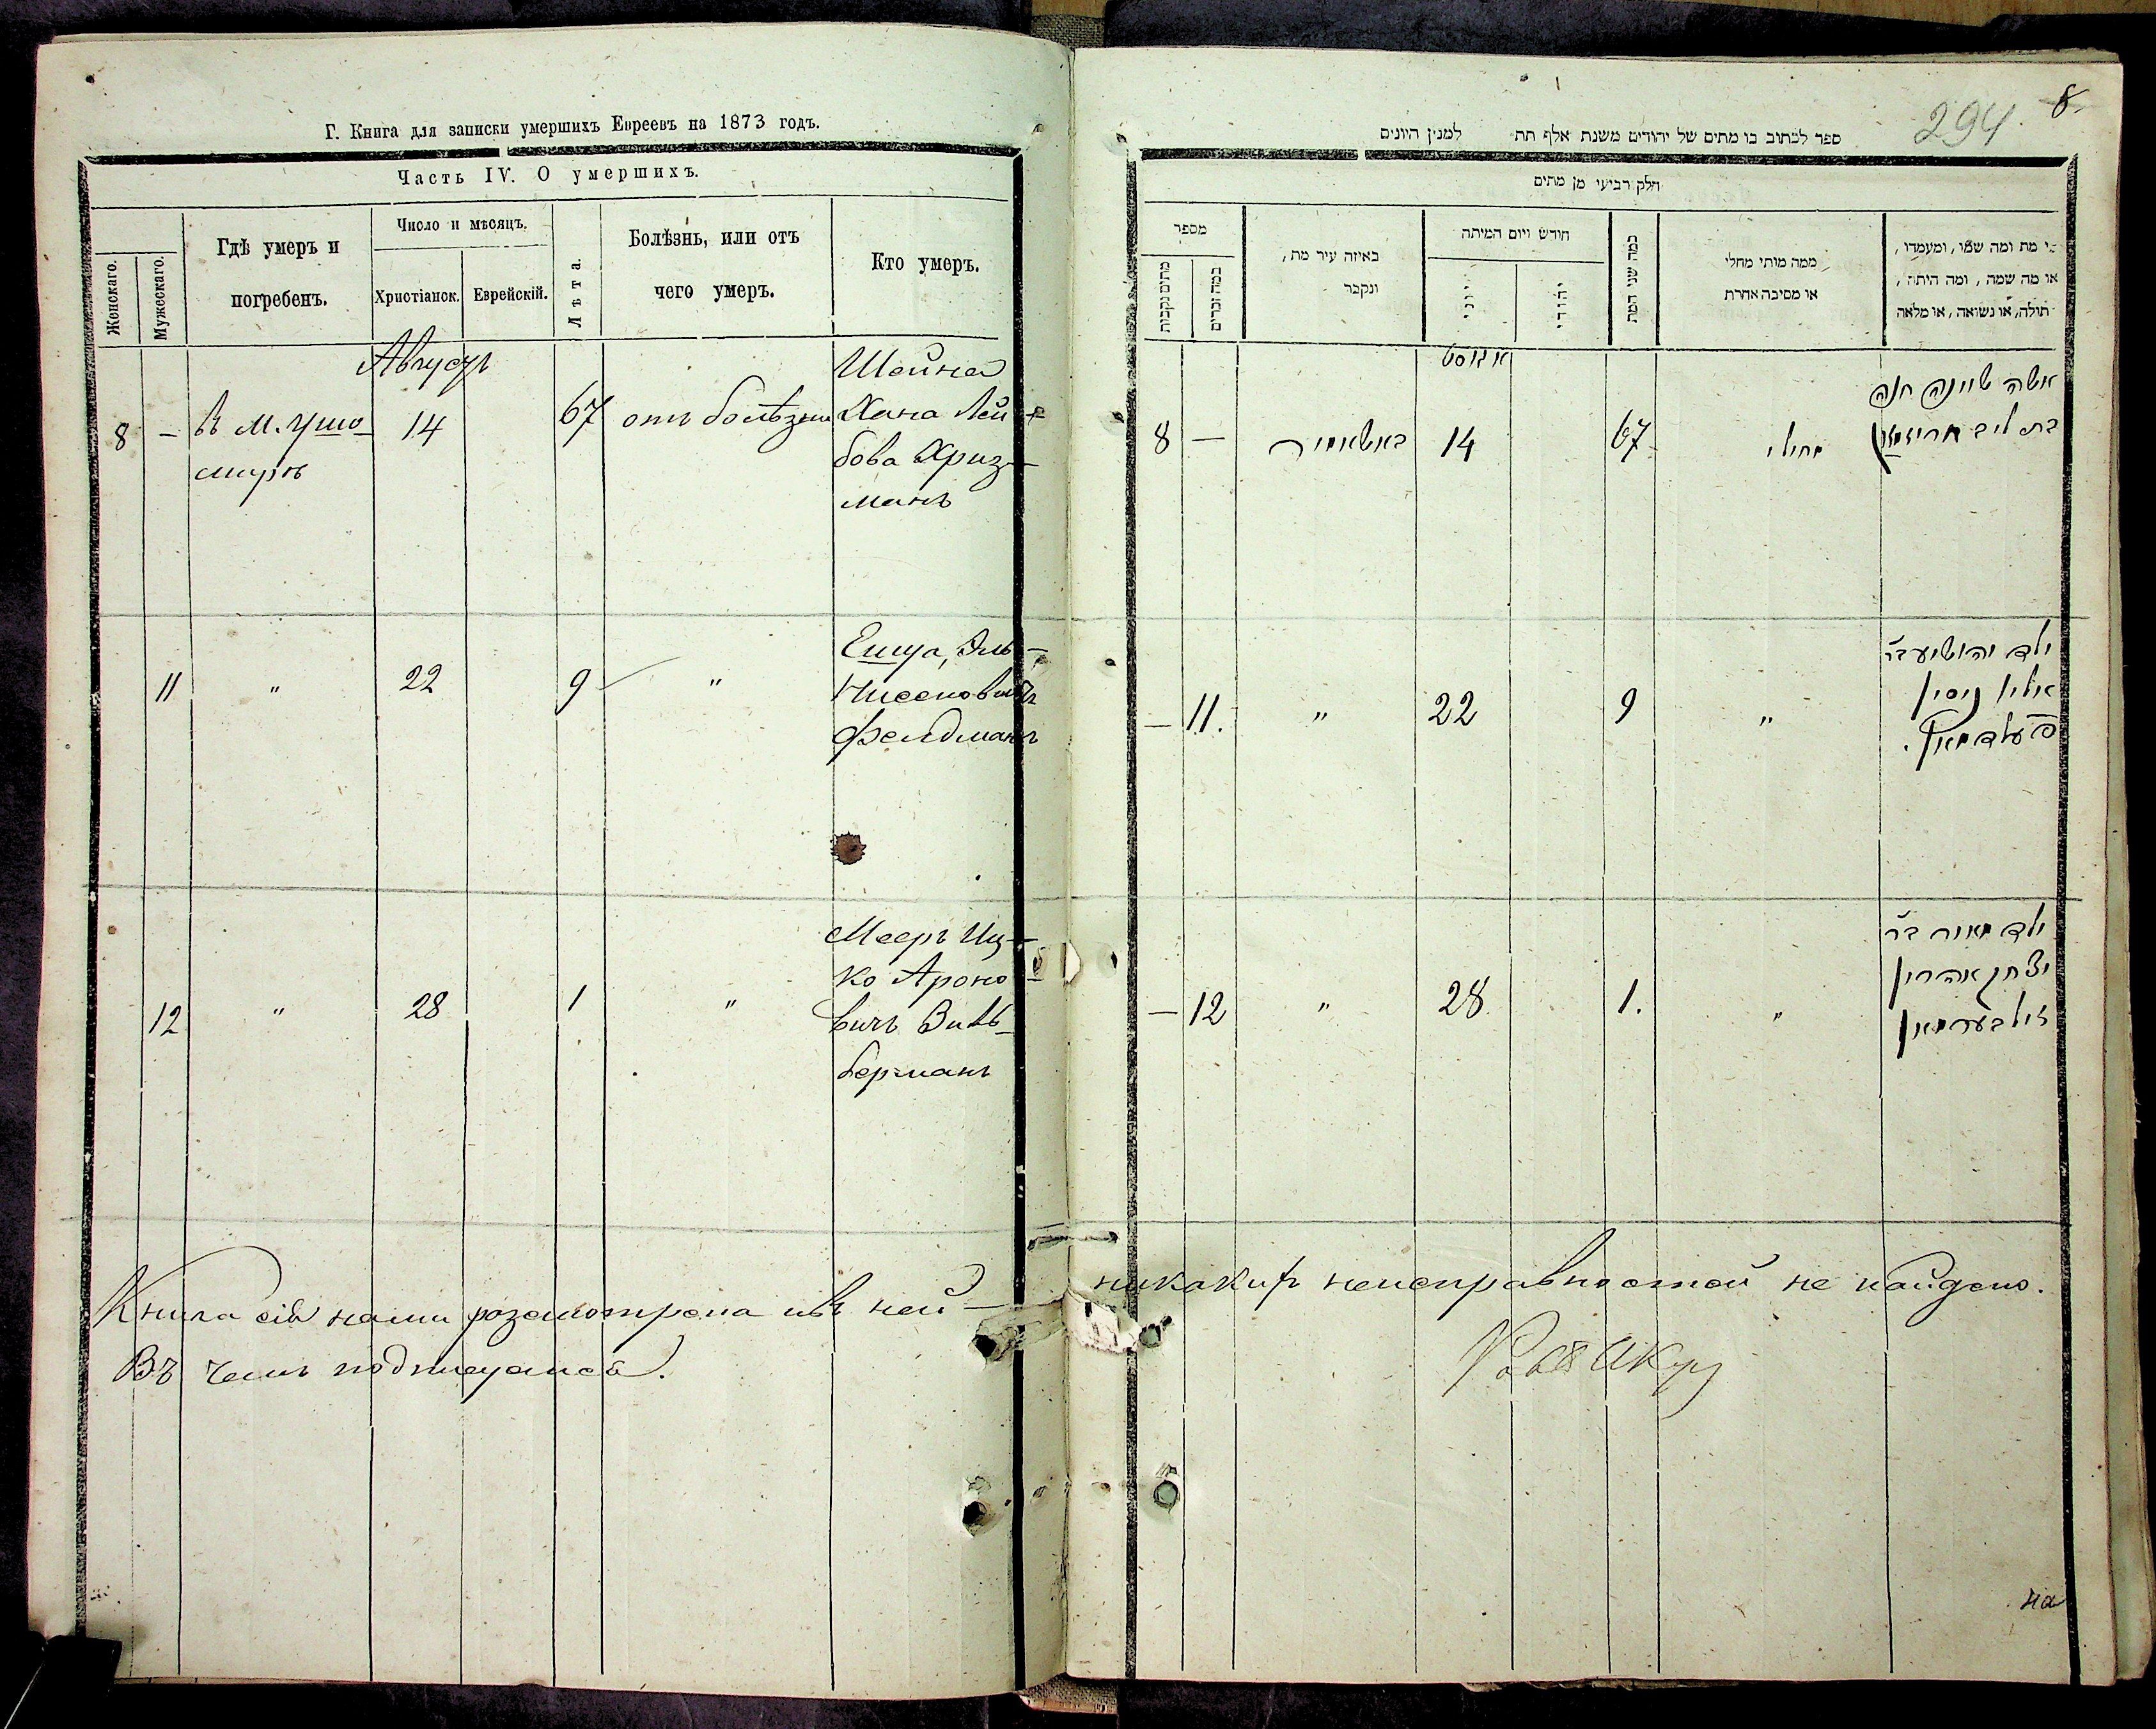 Г. Книга для записки умершихъ Евреевъ на 1873 годъ.
Часть IV. О умершихъ.
Женскаго.
Мужескаго.
Гдѣ умеръ и
погребенъ.
Число и мѣсяцъ.
Христіанск.
Еврейскій.
Лѣта.
Болѣзнь, или отъ
чего умеръ.
Кто умеръ.
Августъ
8 – в м. Ушо-
мирѣ
14
67
отъ болѣзни
Шейна
Хана Лей-
бова Хриз-
манъ
11 " 22 9 "
Ешуа, Эль-
Нисеновичъ
Фельдманъ
12 " 28 1 "
Мееръ Иц-
ко Ароно-
вичъ Зиль-
берманъ
Книга сія нами розсмотрена и въ ней –
Въ чемъ подписуемся.
294.
8
ספר לכתוב בו מתים של יהודים משנת אלף תת למנין היונים
חלק רביעי מן מתים
מספר
מתים נקבות
כמה זכרים
באיזה עיר מת,
ונקבר
חודש ויום המיתה
יוני
יהודי
כמה שני המת
ממה מותי מחלי
או מסיבה אחרת
מי מת ומה שמו, ומעמדו,
או מה שמה, ומה היתה,
בתולה, או נשואה, או מלאה
אגוסט
8 — באשאמיר 14 67 מחולי
אשה שיינה חנה
בת ליב חריזמאן
— 11. " 22 9 "
ילד יהושיע בר
אילין ניסין
פעלדמאן.
— 12 " 28 1. "
ילד מאיר בר
יצחק אהרון
זילבערמאן
никакихъ неисправностей не найдено.
на